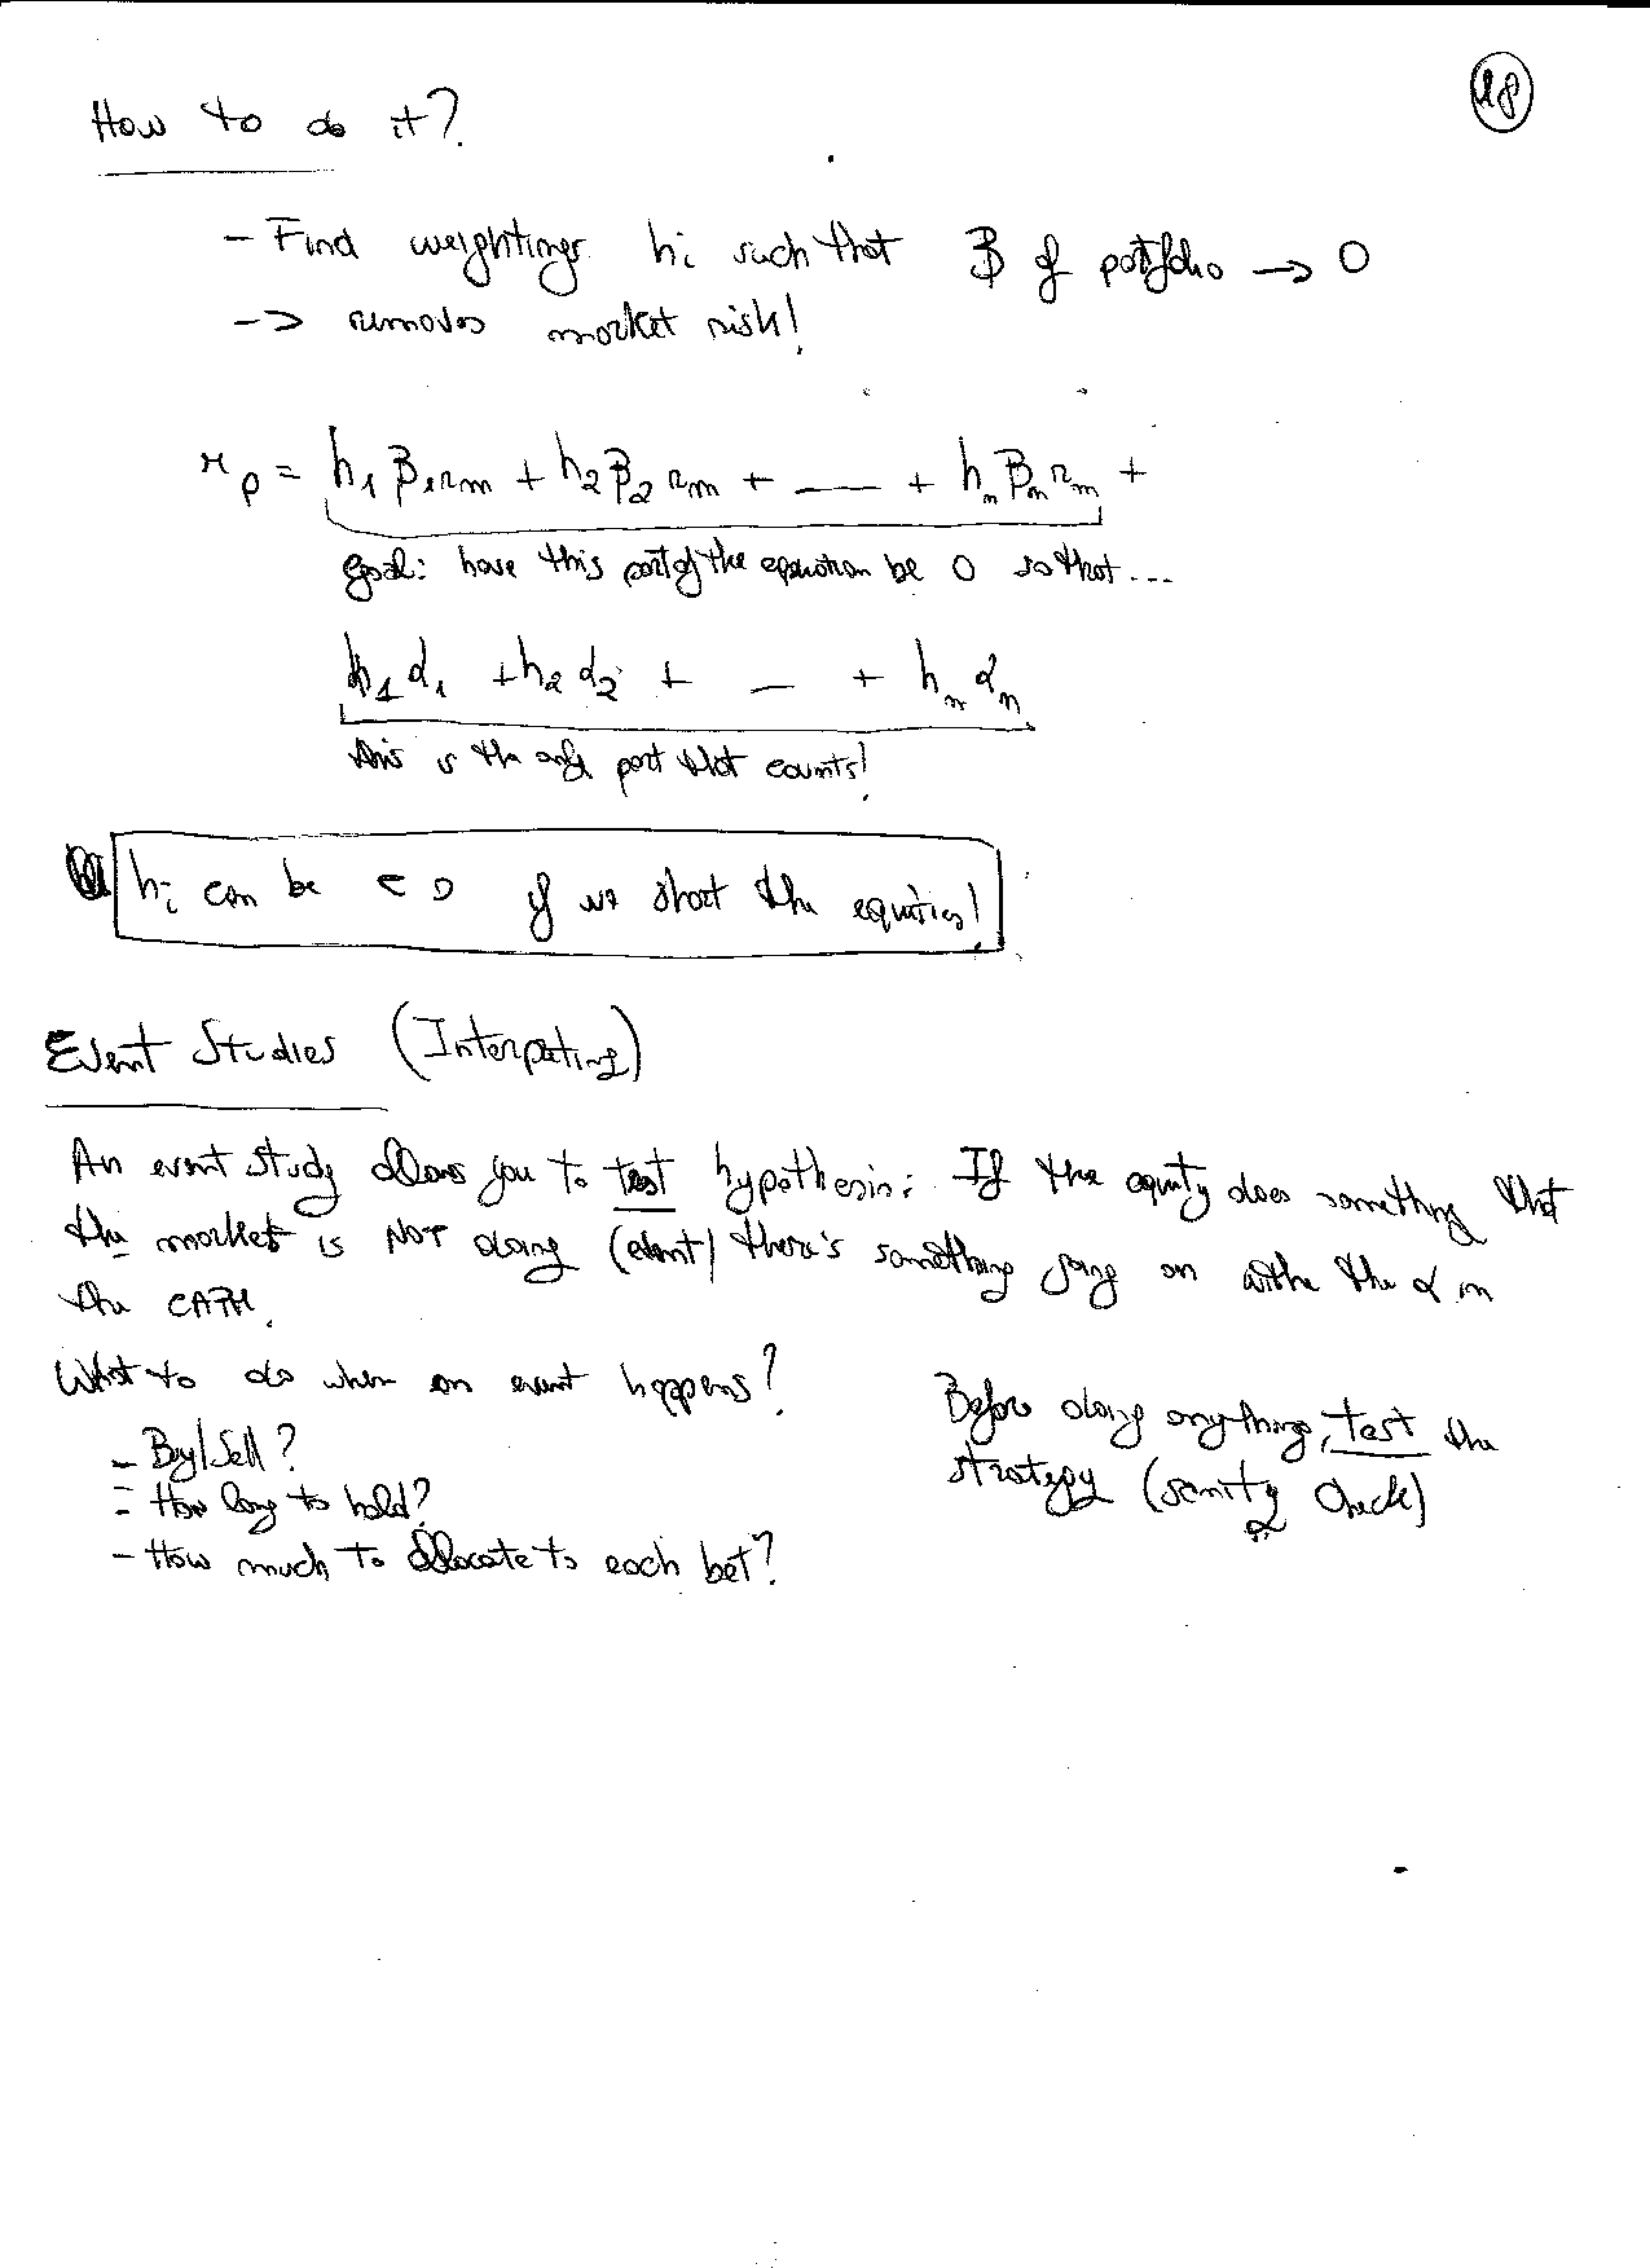 18
How to do it?
- Find weightings hi such that β of portfolio → 0
-> removes market risk!
rp = h1 β1 rm + h2 β2 rm + —— + hn βn rm +
goal: have this part of the equation be 0 so that...
h1 α1 + h2 α2 + — + hn αn
this is the only part that counts!
hi can be < 0 if we short the equities!
Event Studies (Interpeting)
An event study allows you to test hypothesis: If the equity does something that
the market is NOT doing (event) there's something going on withe the α in
the CAPM.
What to do when an event happens?
- Buy/Sell?
- How long to hold?
- How much to allocate to each bet?
Before doing anything, test the
strategy (sanity check)